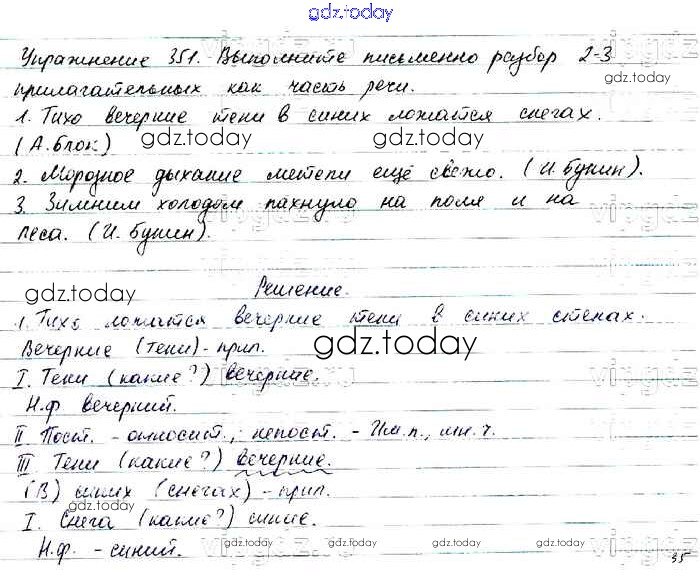 gdz.today
Упражнение 351. Выполните письменно разбор 2-3
gdz.today
прилагательных как часть речи.
1. Тихо вечерние тени в синих ложатся снегах.
(А. Блок) gdz.today gdz.today
2. Морозное дыхание метели ещё свежо. (И. Бунин).
3. Зимним холодом пахнуло на поля и на
леса. (И. Бунин).
gdz.today
Решение.
gdz.today
1. Тихо ложатся вечерние тени в синих стенах.
Вечерние (тени) - прил.
gdz.today
I. Тени (какие?) вечерние.
Н.ф вечерний.
II. Пост. - относит., непост. - Им.п., мн.ч.
III Тени (какие?) вечерние.
gdz.today
(В) синих (снегах) - прил.
I. Снега (какие?) синие.
Н.ф. - синий.
gdz.today gdz.today gdz.today
35